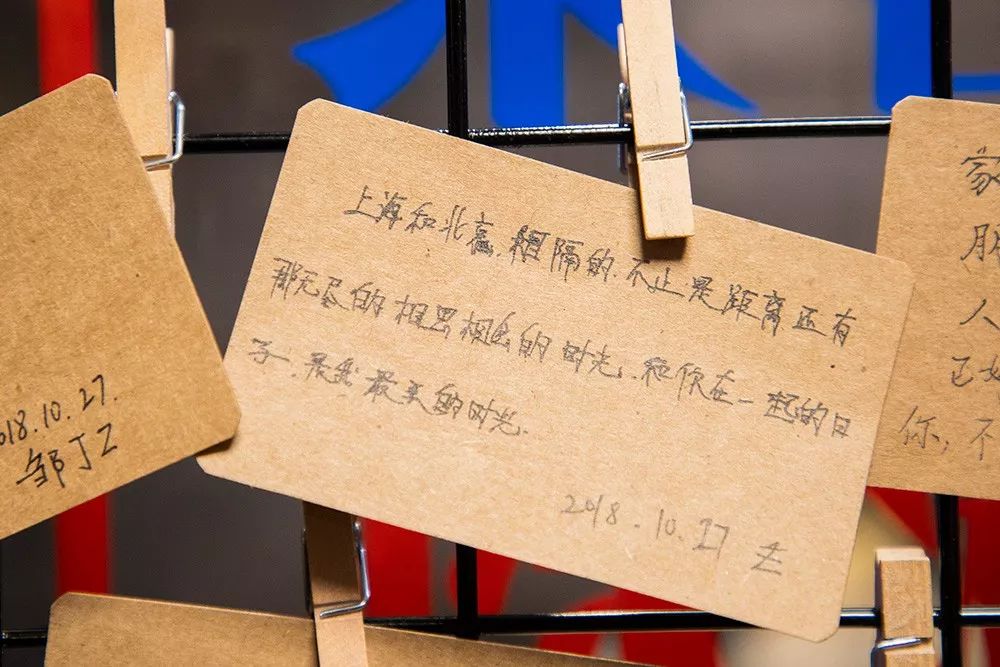 上海和北京.相隔的.不止是距离还有
那无尽的相思相念的时光.和你在一起的日
子.是我最美的时光.
2018.10.27
018.10.27.
邹丁Z
家
人
己女
你,不